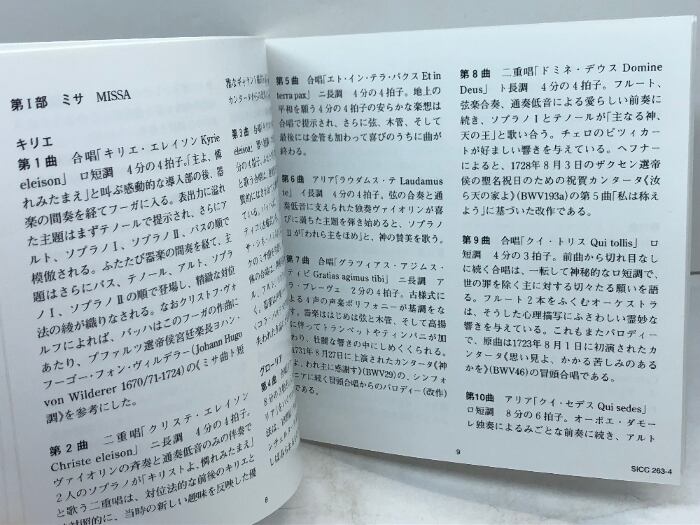 第Ⅰ部 ミサ MISSA
キリエ
第1曲 合唱「キリエ・エレイソン Kyrie
eleison」 ロ短調 4分の4拍子。「主よ、憐
れみたまえ」と叫ぶ感動的な導入部の後、器
楽の間奏を経てフーガに入る。表出力に溢れ
た主題はまずテノールで提示され、さらにア
ルト、ソプラノⅠ、ソプラノⅡ、バスの順で
模倣される。ふたたび器楽の間奏を経て、主
題はさらにバス、テノール、アルト、ソプラ
ノⅠ、ソプラノⅡの順で登場し、精緻な対位
法の綾が織りなされる。なおクリストフ・ヴォ
ルフによれば、バッハはこのフーガの作曲に
あたり、プファルツ選帝侯宮廷楽長ヨハン・
フーゴー・フォン・ヴィルデラー(Johann Hugo
von Wilderer 1670/71-1724)の《ミサ曲ト短
調》を参考にした。
第2曲 二重唱「クリステ・エレイソン
Christe eleison」 ニ長調 4分の4拍子。
ヴァイオリンの斉奏と通奏低音のみの伴奏で
2人のソプラノが「キリストよ、憐れみたまえ」
と歌う二重唱は、対位法的な前後のキリエと
対照的に、当時の新しい趣味を反映した優
雅なギャラント
カンタータ
第3曲
eleison」
グローリア
第4曲
8
第5曲 合唱「エト・イン・テラ・パクス Et in
terra pax」 ニ長調 4分の4拍子。地上の
平和を願う4分の4拍子の安らかな楽想は
合唱で提示され、さらに弦、木管、そして
最後には金管も加わって喜びのうちに曲が
終わる。
第6曲 アリア「ラウダムス・テ Laudamus
te」 イ長調 4分の4拍子。弦の合奏と通
奏低音に支えられた独奏ヴァイオリンが喜
びに満ちた主題を弾き始めると、ソプラノ
Ⅱが「われら主をほめ」と、神の賛美を歌う。
第7曲 合唱「グラツィアス・アジムス・
ティビ Gratias agimus tibi」 ニ長調 ア
ラ・ブレーヴェ 2分の4拍子。古様式に
よる4声の声楽ポリフォニーが基調をな
す。器楽ははじめは弦と木管、そして高揚
に伴ってトランペットやティンパニが加
わり、壮麗な響きの中にしめくくられる。
1731年8月27日に上演されたカンタータ《神
よ、われ主に感謝す》(BWV29)の、シンフォ
ニアに続く冒頭合唱からのパロディー(改作)
である。
第8曲 二重唱「ドミネ・デウス Domine
Deus」 ト長調 4分の4拍子。フルート、
弦楽合奏、通奏低音による愛らしい前奏に
続き、ソプラノⅠとテノールが「主なる神、
天の王」と歌い合う。チェロのピツィカー
トが好ましい響きを与えている。ヘフナー
によると、1728年8月3日のザクセン選帝
侯の聖名祝日のための祝賀カンタータ《汝
ら天の家よ》(BWV193a)の第5曲「私は称え
よう」に基づいた改作である。
第9曲 合唱「クイ・トリス Qui tollis」 ロ
短調 4分の3拍子。前曲から切れ目なし
に続く合唱は、一転して神秘的なロ短調で、
世の罪を除く主に対する切々たる願いを語
る。フルート2本をふくむオーケストラ
は、そうした心理描写にふさわしい霊妙な
響きを与えている。これもまたパロディー
で、原曲は1723年8月1日に初演された
カンタータ《思い見よ、かかる苦しみのある
かを》(BWV46)の冒頭合唱である。
第10曲 アリア「クイ・セデス Qui sedes」
ロ短調 8分の6拍子。オーボエ・ダモー
レ独奏によるみごとな前奏に続き、アルト
9
SICC 263-4